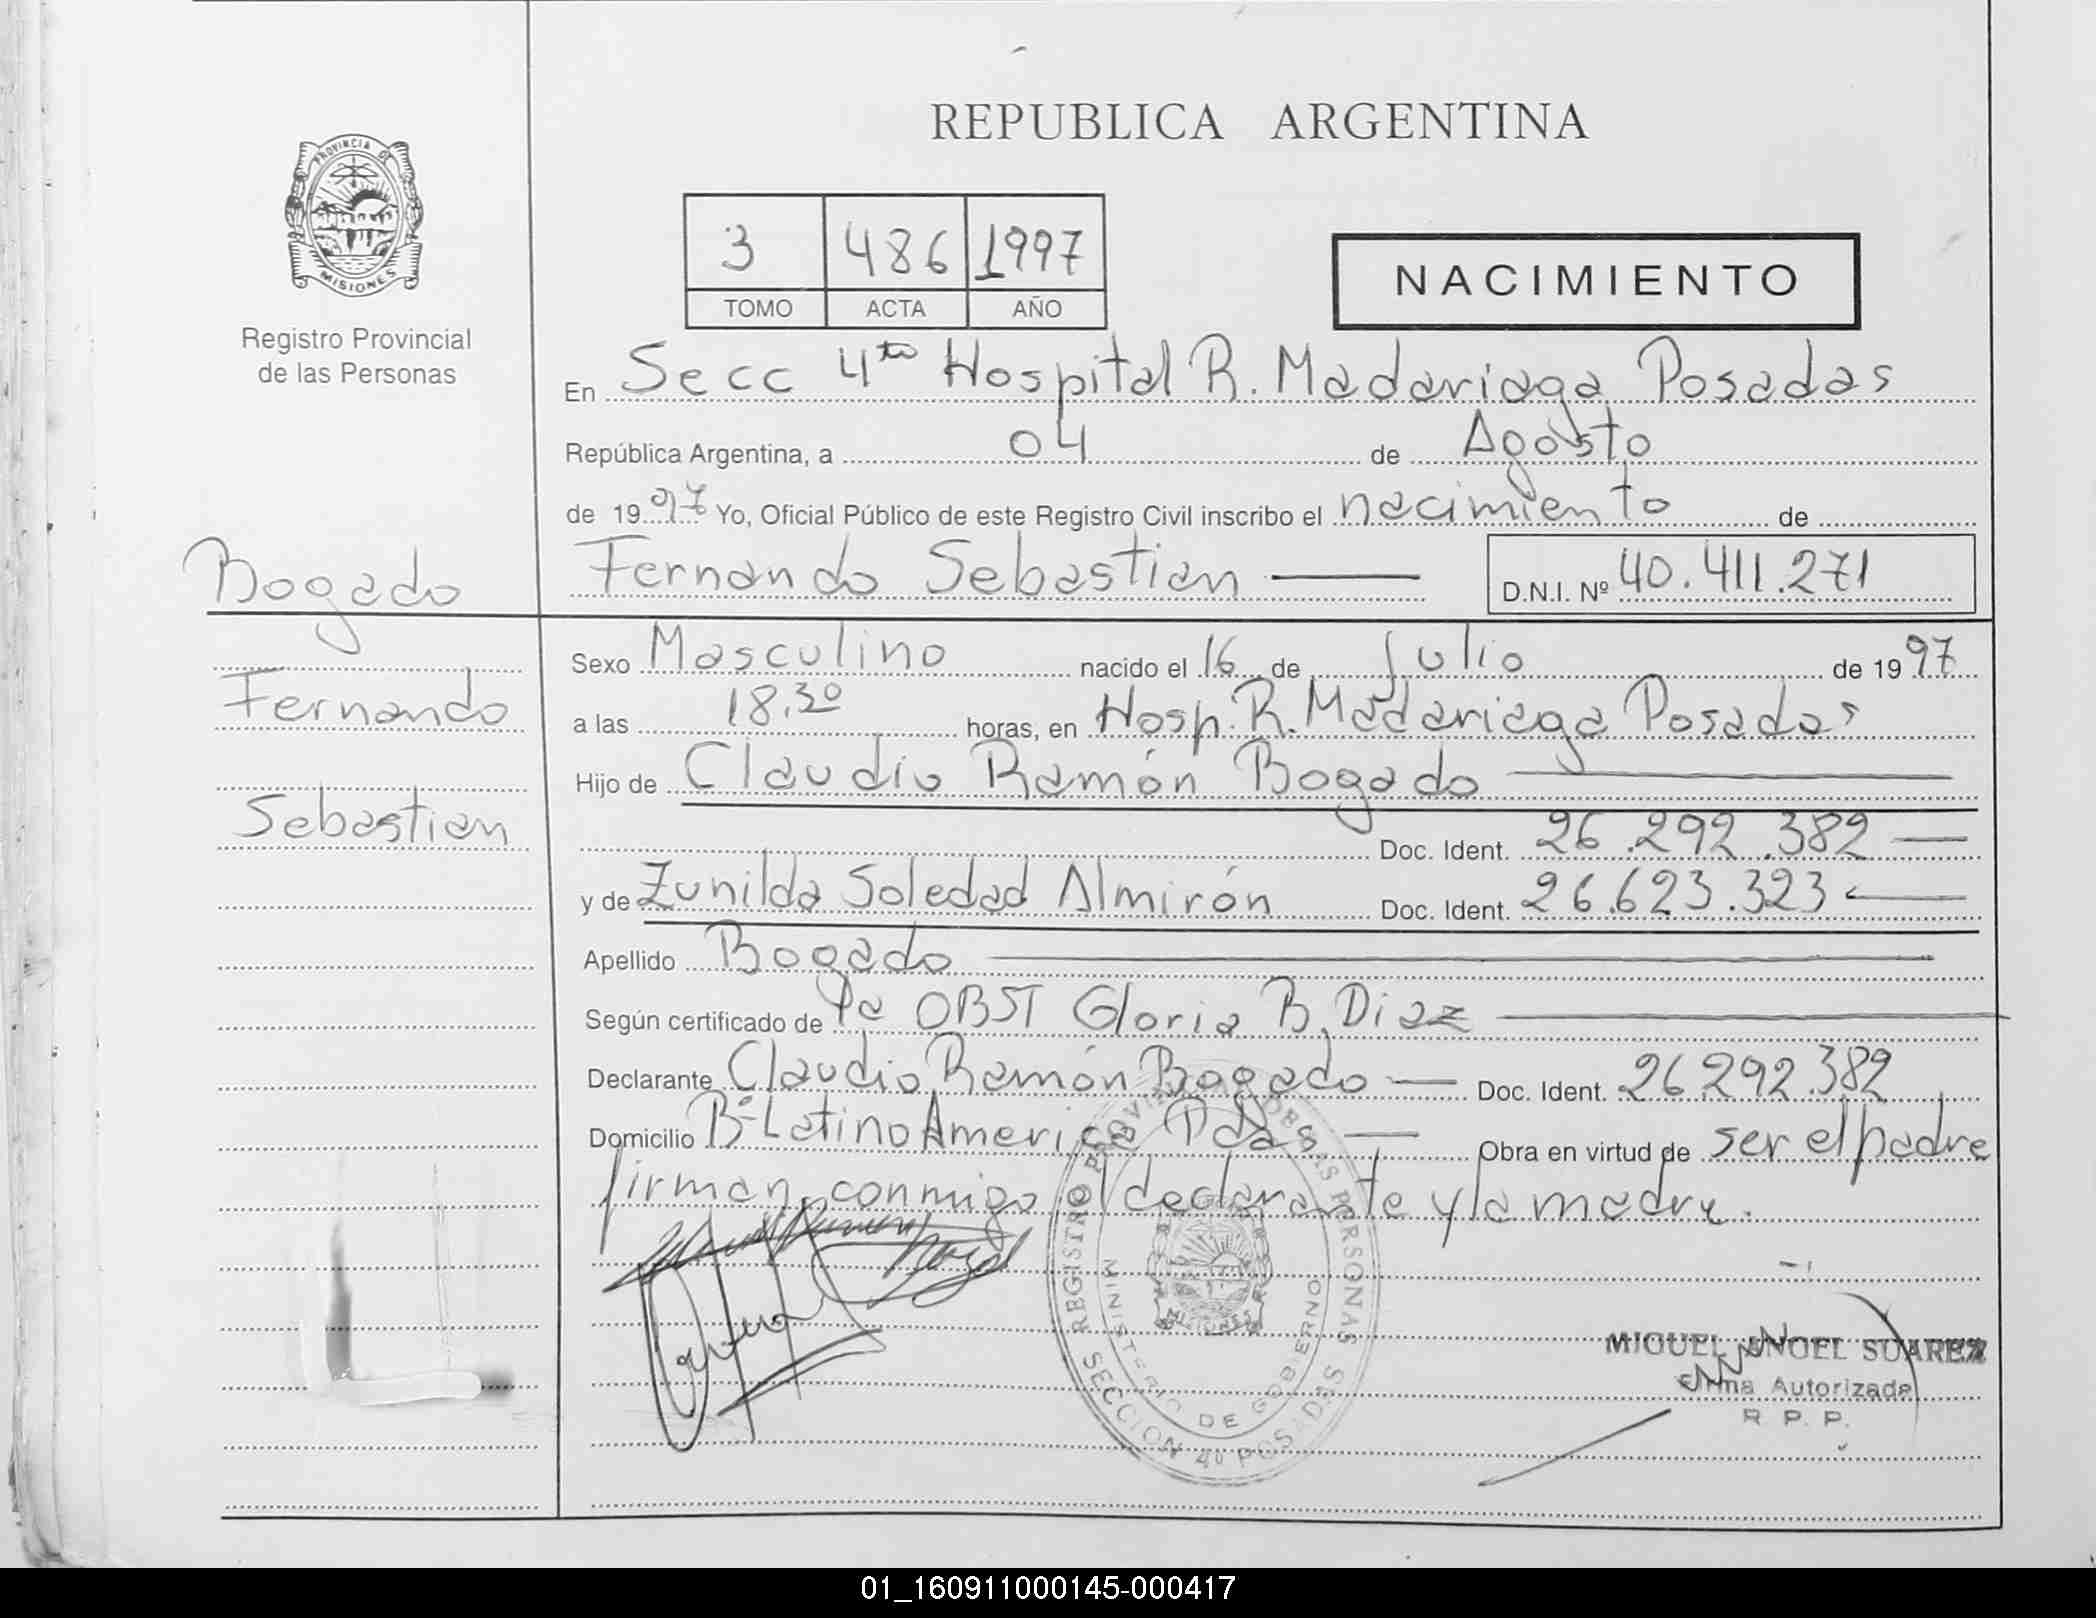 REPUBLICA ARGENTINA
PROVINCIA DE
MISIONES
Registro Provincial
de las Personas
3 486 1997
TOMO ACTA AÑO
NACIMIENTO
En Secc 4ta Hospital R. Madariaga Posadas
República Argentina, a 04 de Agosto
de 1997 Yo, Oficial Público de este Registro Civil inscribo el nacimiento de
Fernando Sebastian D.N.I. Nº 40.411.271
Bogado
Fernando
Sebastian
Sexo Masculino nacido el 16 de Julio de 1997
a las 18.30 horas, en Hosp. R. Madariaga Posadas
Hijo de Claudio Ramón Bogado
Doc. Ident. 26.292.382
y de Zunilda Soledad Almirón Doc. Ident. 26.623.323
Apellido Bogado
Según certificado de la OBST Gloria B. Diaz
Declarante Claudio Ramón Bogado Doc. Ident. 26.292.382
Domicilio Bº Latino America Pdas Obra en virtud de ser el padre
firman conmigo el declarante y la madre.
REGISTRO PROVINCIAL DE LAS PERSONAS
MINISTERIO DE GOBIERNO
MISIONES
SECCION 4º POSADAS
MIGUEL ANGEL SUAREZ
Firma Autorizada
R. P. P.
01_160911000145-000417